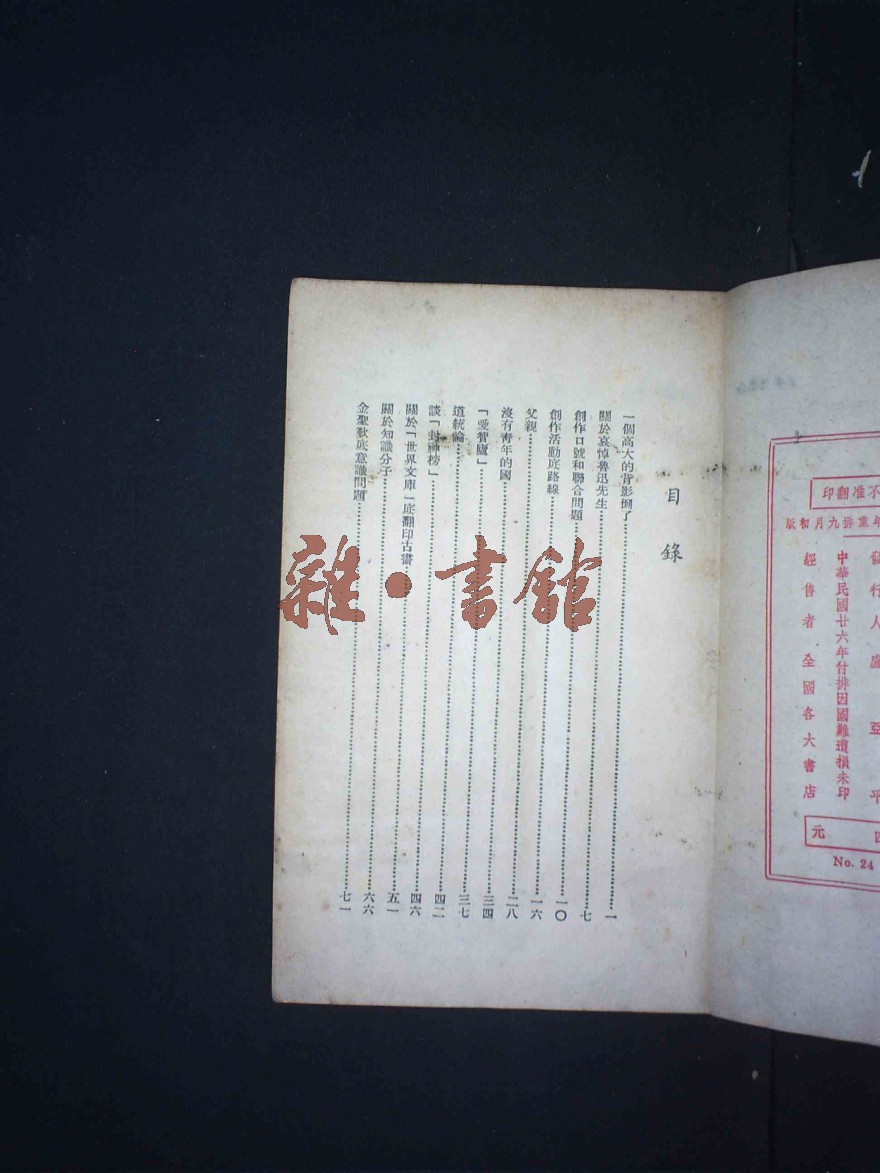 不准翻印
年重排九月初版
行人盧亞平
中華民國廿六年付排因國難遭損未印
經售者全國各大書店
元
No. 24
目錄
一個高大的背影倒了……一
關於哀悼魯迅先生……七
創作口號和聯合問題……一〇
創作活動底路線……一六
父親……二八
沒有青年的國……三四
「愛智廬」……三七
道統論……四二
談「封神榜」……四六
關於「世界文庫」底翻印古書……五一
關於知識分子……六六
金聖歎底意識問題……七一
雜·書館